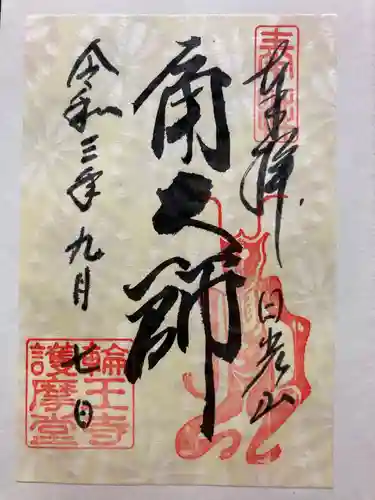 奉拝
日光山
角大師
令和三年九月七日
輪王寺
護摩堂